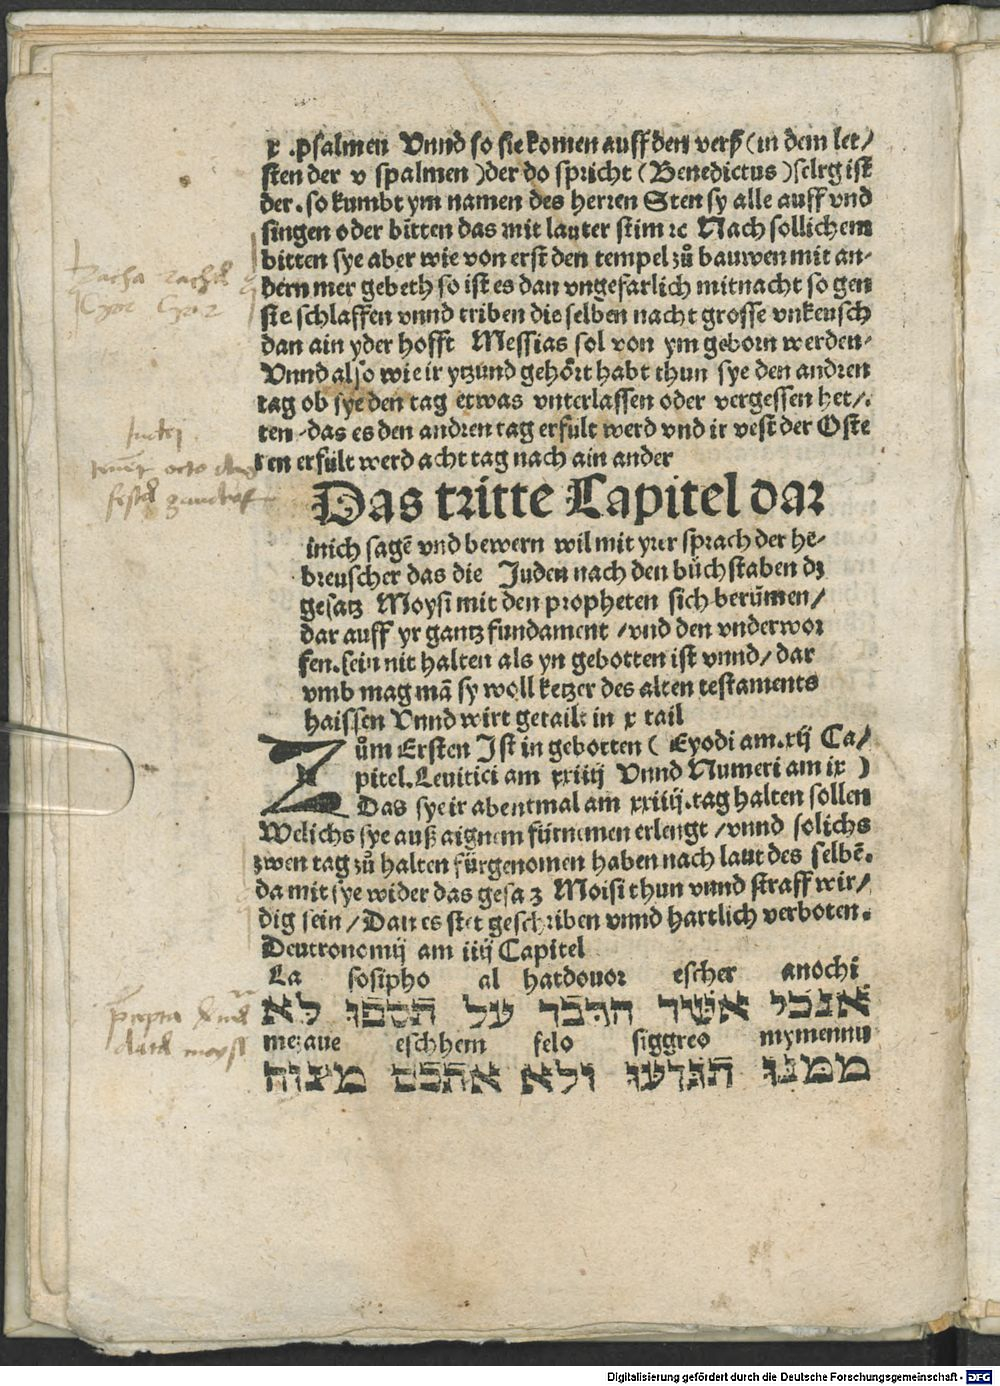 x .psalmen Vnnd so sie komen auff den verß (in dem let/
sten der v spalmen )der do spricht (Benedictus )selrg ist
der. so kumbt ym namen des herren Sten sy alle auff vnd
singen oder bitten das mit lauter stim ꝛc Nach sollichem
bitten sye aber wie von erst den tempel zů bauwen mit an-
dern mer gebeth so ist es dan vngefarlich mitnacht so gen
sie schlaffen vnnd triben die selben nacht grosse vnkeusch
dan ain yder hofft Messias sol von ym geborn werden-
Vnnd also wie ir ytzund gehört habt thun sye den andren
tag ob sye den tag etwas vnterlassen oder vergessen het/.
ten -das es den andren tag erfult werd vnd ir vest der Oste
ren erfült werd acht tag nach ain ander
Das tritte Capitel dar
inich sagē vnd bewern wil mit yrer sprach der he-
breuscher das die Juden nach den büchstaben dz
gesatz Moysi mit den propheten sich berümen/
dar auff yr gantz fundament /vnd den vnderwor
fen. sein nit halten als yn gebotten ist vnnd/ dar
vmb mag mā sy woll ketzer des alten testaments
haissen Vnnd wirt getailt in x tail
Zům Ersten Ist in gebotten ( Exodi am.xij Ca/
pitel. Leuitici am xxiiij Vnnd Numeri am ix )
Das sye ir abentmal am xxiiij.tag halten sollen
Welichs sye auß aignem fürnemen erlengt /vnnd solichs
zwen tag zů halten fürgenomen haben nach laut des selbē.
da mit sye wider das gesa z Moisi thun vnnd straff wir/
dig sein / Dan es stet geschriben vnnd hartlich verboten.
Deutronomij am iiij Capitel
La sosipho al hatdouor escher anochi
אנכי אשר הדבר על תספו לא
mezaue eschhem felo siggreo mymennu
ממנו תגרעו ולא אתכם מצוה
Digitalisierung gefördert durch die Deutsche Forschungsgemeinschaft - DFG